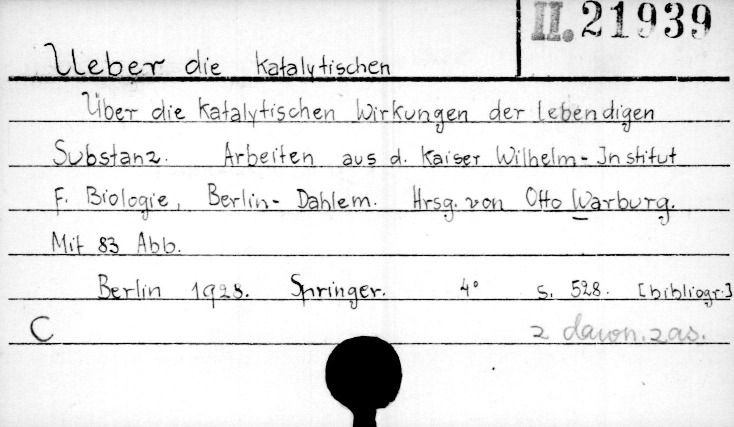 II. 21939
Ueber die katalytischen
Über die katalytischen Wirkungen der lebendigen
Substanz. Arbeiten aus d. Kaiser Wilhelm-Institut
F. Biologie, Berlin-Dahlem. Hrsg. von Otto Warburg.
Mit 83 Abb.
Berlin 1928. Springer. 4° s. 528. [bibliogr.]
C z dawn. zas.